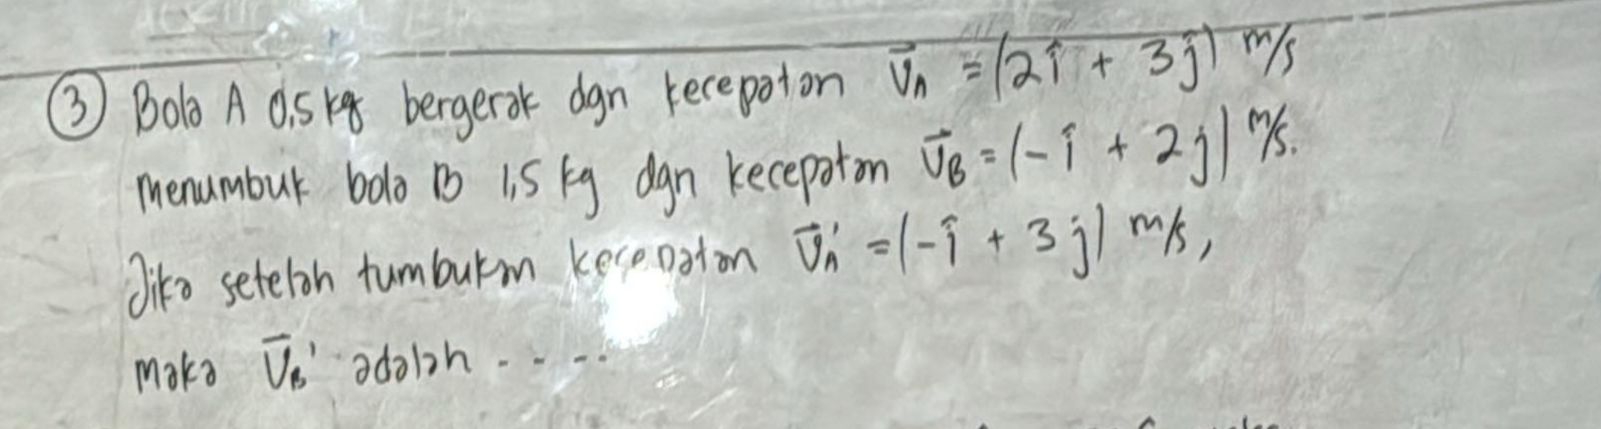 ③ Bola A 0,5 kg bergerak dgn kecepatan v⃗A = (2î + 3ĵ) m/s
menumbuk bola B 1,5 kg dgn kecepatan v⃗B = (-î + 2ĵ) m/s.
Jika setelah tumbukan kecepatan v⃗A' = (-î + 3ĵ) m/s,
maka v⃗B' adalah - - - -